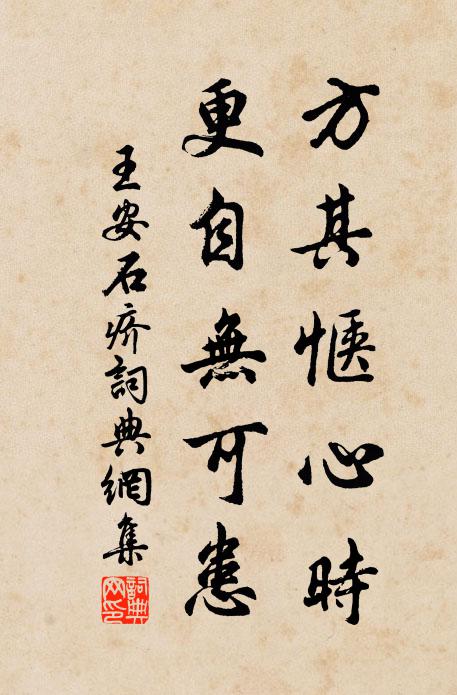 方其惬心時
更自無可患
王安石疥詞典網集
詞典
网印